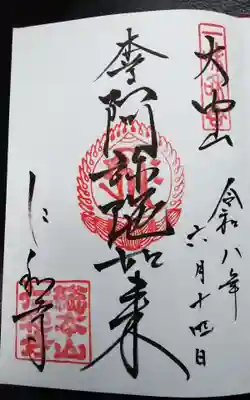 大内山
令和八年
六月十四日
奉
阿弥陀如来
仁和寺
総本山
仁和寺